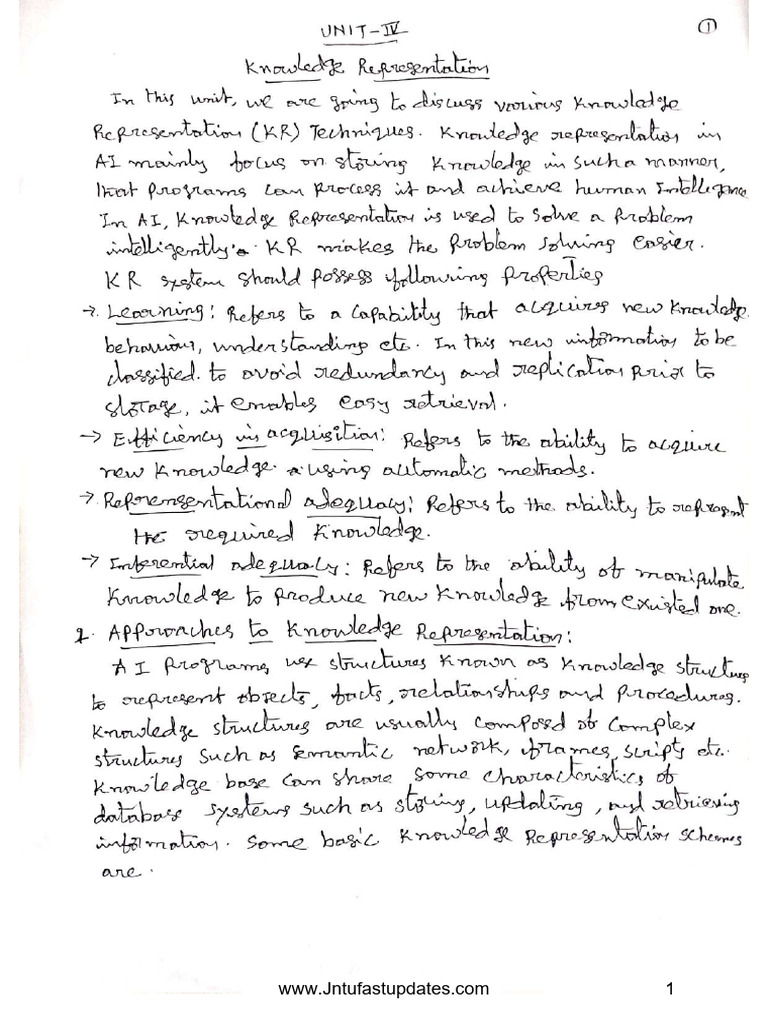 UNIT-IV
1
Knowledge Representation
In this unit, we are going to discuss various Knowledge
Representation (KR) Techniques. Knowledge representation in
AI mainly focus on storing Knowledge in such a manner,
that programs can process it and achieve human Intelligence
In AI, Knowledge Representation is used to solve a problem
intelligently. KR makes the problem solving easier.
KR system should possess following properties
→ Learning: Refers to a capability that acquires new knowledge,
behaviour, understanding etc. In this new information to be
classified to avoid redundancy and replication prior to
storage, it enables easy retrieval.
→ Efficiency in acquisition: Refers to the ability to acquire
new knowledge using automatic methods.
→ Represensentational adequacy: Refers to the ability to represent
the required Knowledge.
→ Inferential adequacy: Refers to the ability of manipulate
Knowledge to produce new Knowledge from existed one.
2. Approaches to Knowledge Representation:
AI programs use structures known as Knowledge structures
to represent objects, facts, relationships and procedures.
Knowledge structures are usually composed of complex
structures such as semantic network, frames, scripts etc.
Knowledge base can share some characteristics of
database systems such as storing, updating, and retrieving
information. Some basic Knowledge Representation schemes
are.
www.Jntufastupdates.com
1